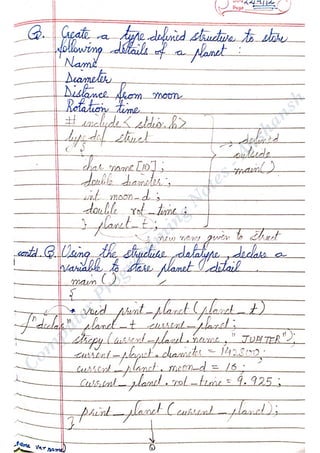 Page
Q. Create a type defined structure to store
following details of a planet :
Name
Diameter
Distance from moon
Rotation time
# include < stdio.h >
typedef struct
{
char name [10] ;
double diameter ;
int moon_d ;
double rot_time ;
} planet_t ;
→ defined
outside
main( )
new name given to struct
contd. Q. Using the structure datatype, declare a
variable to store planet detail
main ( )
{
void print_planet (planet_t)
planet_t current_planet ;
strcpy (current_planet.name, "JUPITER") ;
current_planet.diameter =
current_planet.moon_d = 16 ;
current_planet.rot_time = 9.925 ;
print_planet (current_planet) ;
}
name